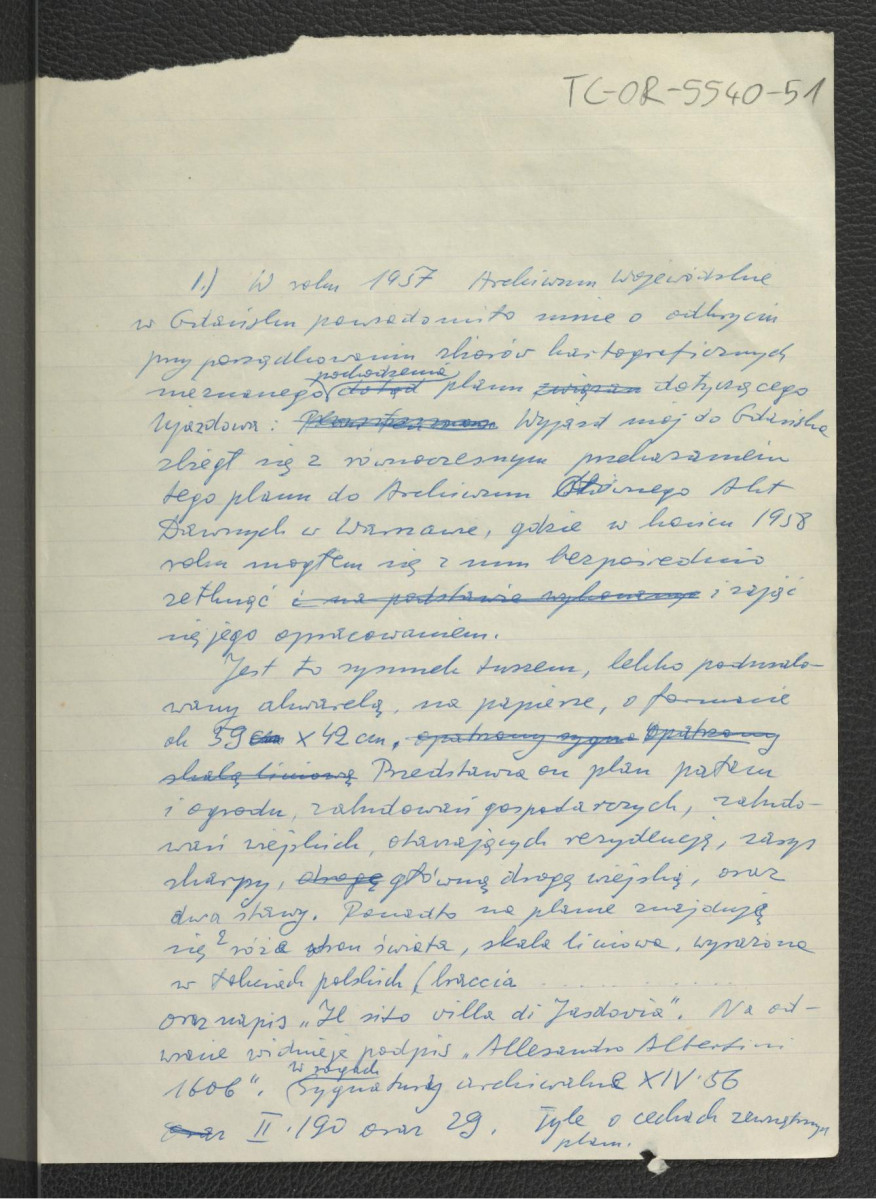 TC-OR-5540-51
1.) W roku 1957 Archiwum Wojewódzkie
w Gdańsku powiadomiło mnie o odkryciu
przy porządkowaniu zbiorów kartograficznych
pochodzenia
nieznanego dotąd planu związan dotyczącego
Ujazdowa: Wyjazd mój do Gdańska
zbiegł się z równoczesnym przekazaniem
tego planu do Archiwum Głównego Akt
Dawnych w Warszawie, gdzie w końcu 1958
roku mogłem się z nim bezpośrednio
zetknąć i na podstawie wykonanego i zająć
się jego opracowaniem.
Jest to rysunek tuszem, lekko podmalo-
wany akwarelą, na papierze, o formacie
ok 59 cm x 42 cm, opatrzony sygna opatrzony
skalą liniową Przedstawia on plan pałacu
i ogrodu, zabudowań gospodarczych, zabudo-
wań wiejskich, otaczających rezydencję, zarys
skarpy, drogę główną drogę wiejską, oraz
dwa stawy. Ponadto na planie znajduję
się róża stron świata, skala liniowa, wyrażona
w łokciach polskich (braccia . . . . . . . . . . .
oraz napis „Il sito villa di Jasdovia". Na od-
wrocie widnieje podpis „Allesandro Albertini
w rogach
1606". sygnatury archiwalne XIV.56
oraz II.190 oraz 29. Tyle o cechach zewnętrznych
planu.